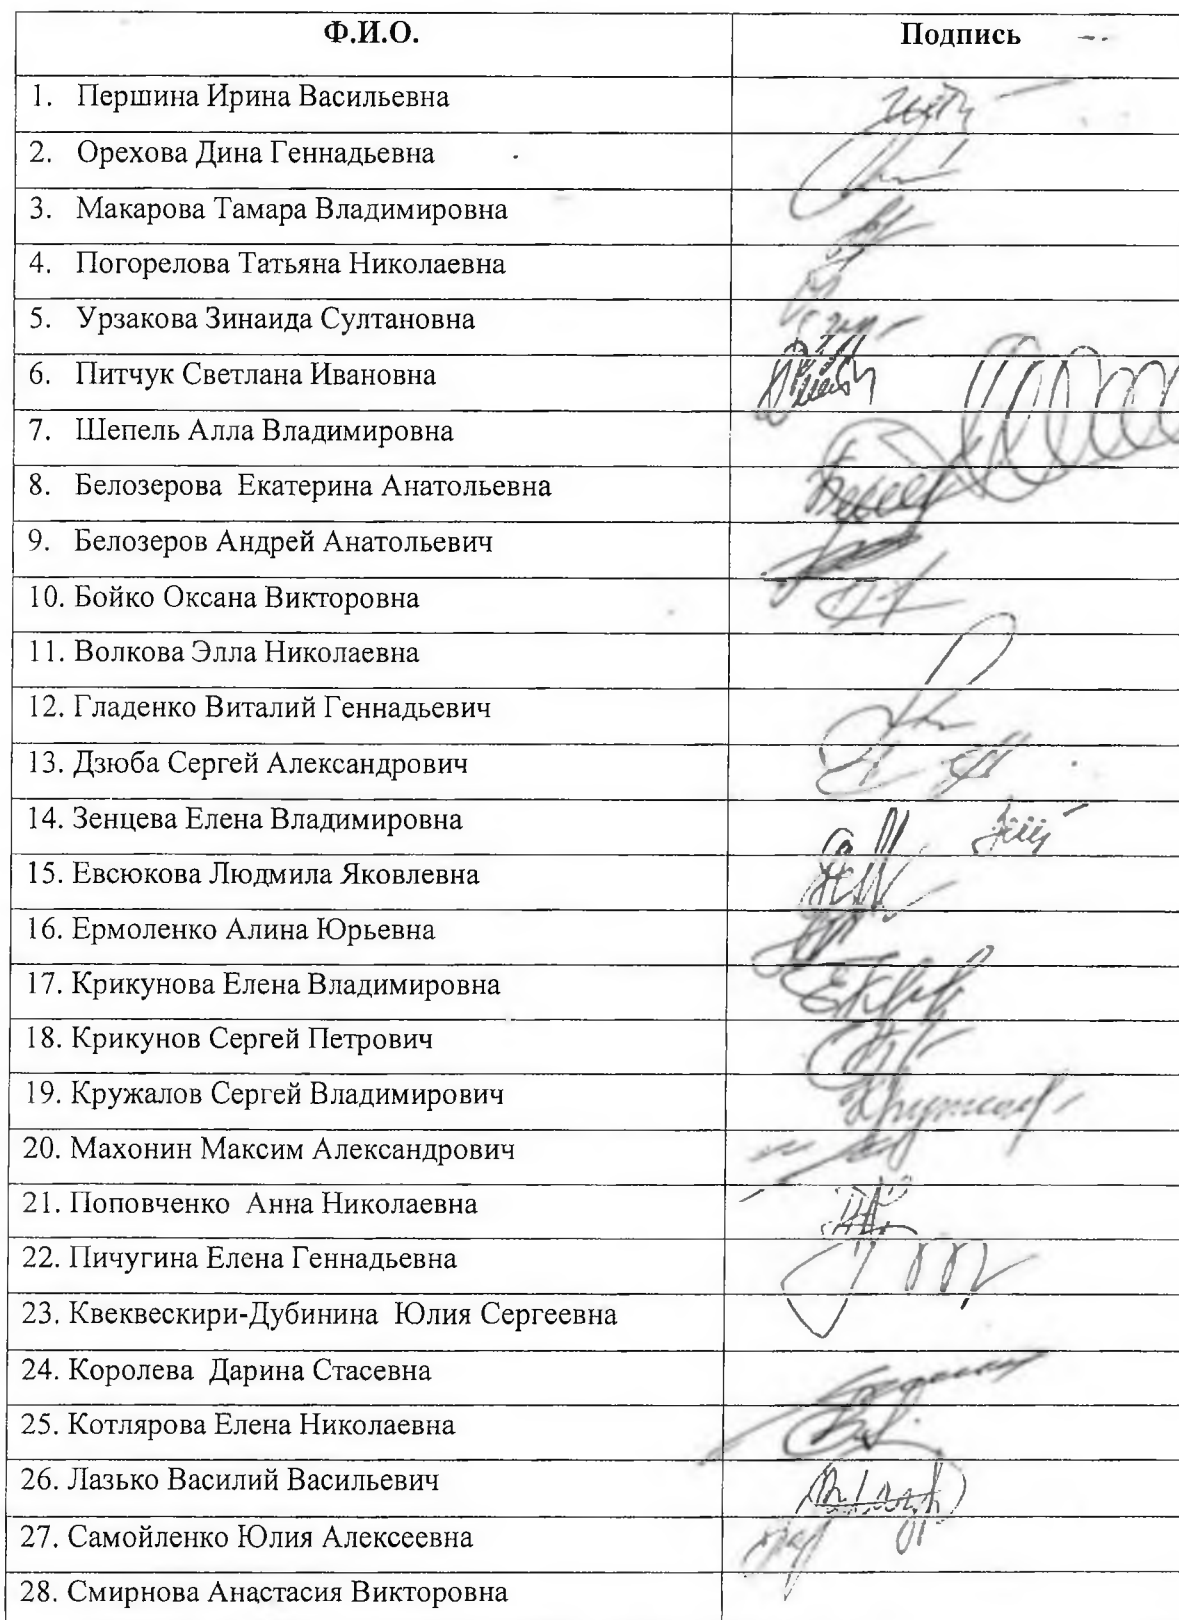 Ф.И.О. Подпись
1. Першина Ирина Васильевна
2. Орехова Дина Геннадьевна
3. Макарова Тамара Владимировна
4. Погорелова Татьяна Николаевна
5. Урзакова Зинаида Султановна
6. Питчук Светлана Ивановна
7. Шепель Алла Владимировна
8. Белозерова Екатерина Анатольевна
9. Белозеров Андрей Анатольевич
10. Бойко Оксана Викторовна
11. Волкова Элла Николаевна
12. Гладенко Виталий Геннадьевич
13. Дзюба Сергей Александрович
14. Зенцева Елена Владимировна
15. Евсюкова Людмила Яковлевна
16. Ермоленко Алина Юрьевна
17. Крикунова Елена Владимировна
18. Крикунов Сергей Петрович
19. Кружалов Сергей Владимирович
20. Махонин Максим Александрович
21. Поповченко Анна Николаевна
22. Пичугина Елена Геннадьевна
23. Квеквескири-Дубинина Юлия Сергеевна
24. Королева Дарина Стасевна
25. Котлярова Елена Николаевна
26. Лазько Василий Васильевич
27. Самойленко Юлия Алексеевна
28. Смирнова Анастасия Викторовна